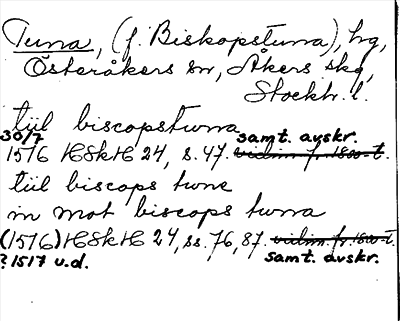 Tuna, (f. Biskopstuna), hg,
Österåkers sn, Åkers skg,
Stockh. l.
tiil biscopstuna
30/7 samt. avskr.
1516 HSkH 24, s. 47. vidim fr. 1800-t.
tiil biscops tune
in mot biscops tuna
(1516) HSkH 24, ss. 76, 87. vidim. fr. 1800-t.
? 1517 u.d. samt. avskr.